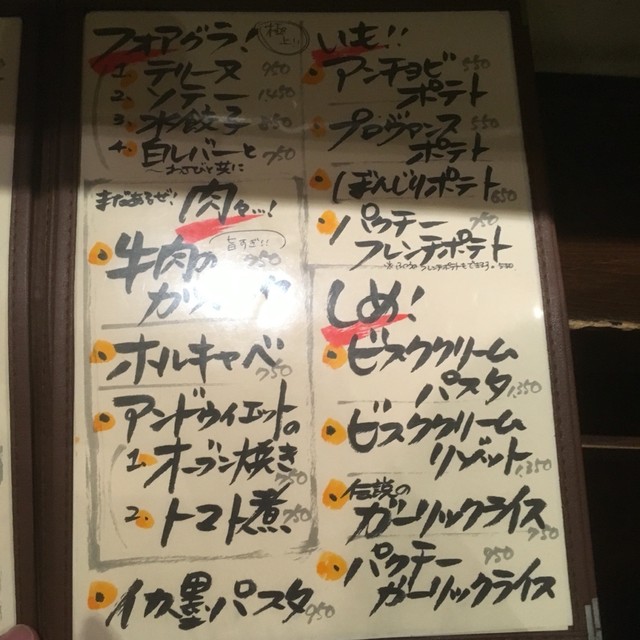 フォアグラ! 極上!!
1. テリーヌ 950
2. ソテー 1,450
3. 水餃子 850
4. 白レバーと 750
わさびと共に
まだあるぜ! 肉々...!
旨すぎ!!
牛肉の 950
ホルキャベ 750
アンドゥイエットの
1. オーブン焼き 750
2. トマト煮 750
イカ墨パスタ 950
いも!!
アンチョビ 550
ポテト
プロヴァンス 550
ポテト
ぼんじりポテト 650
パクチー 750
フレンチポテト
しめ!
ビスククリーム
パスタ 1,350
ビスククリーム
リゾット 1,350
伝説の
ガーリックライス 750
パクチー 950
ガーリックライス